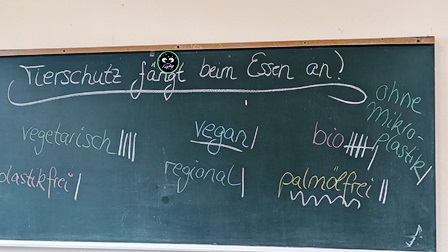 Tierschutz fängt beim Essen an!
ohne
mikro-
plastik |
vegetarisch ||||
vegan |
bio |||| |
plastikfrei |
regional |
palmölfrei ||